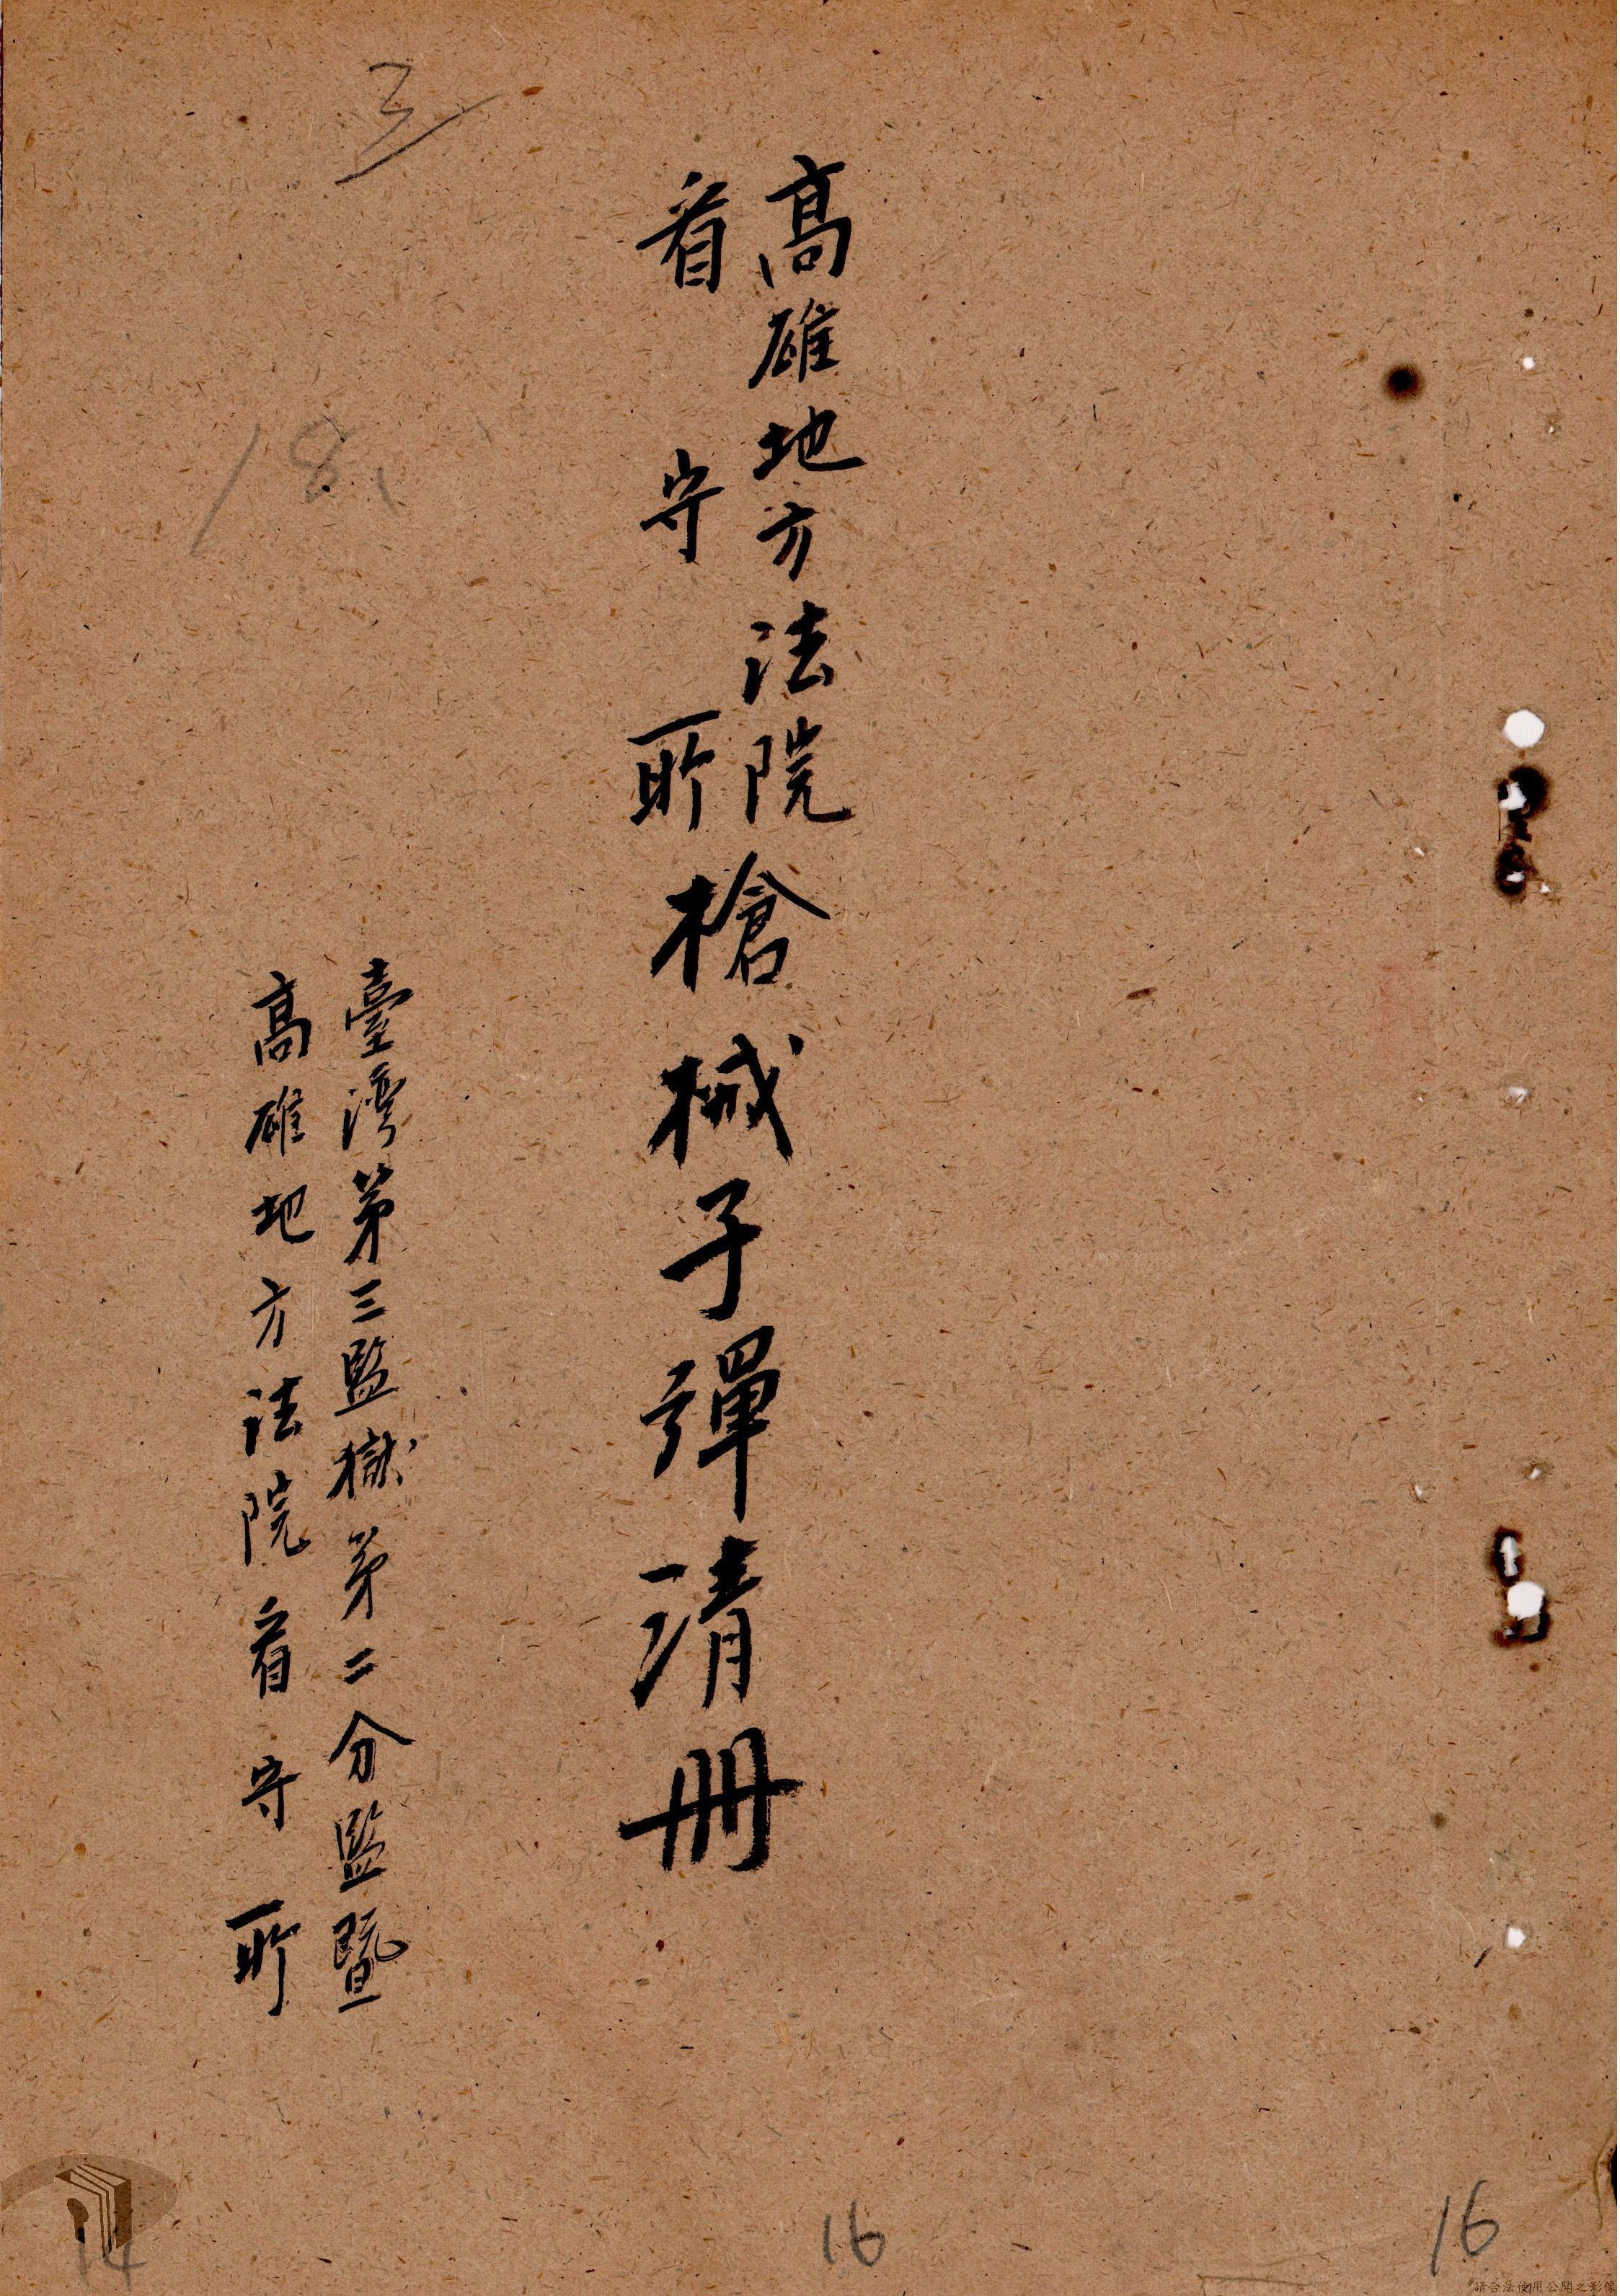 高雄地方法院
看守所
槍械子彈清冊
臺灣第三監獄第二分監暨
高雄地方法院看守所
三
18、
14
16
16
請合法使用公開之影像